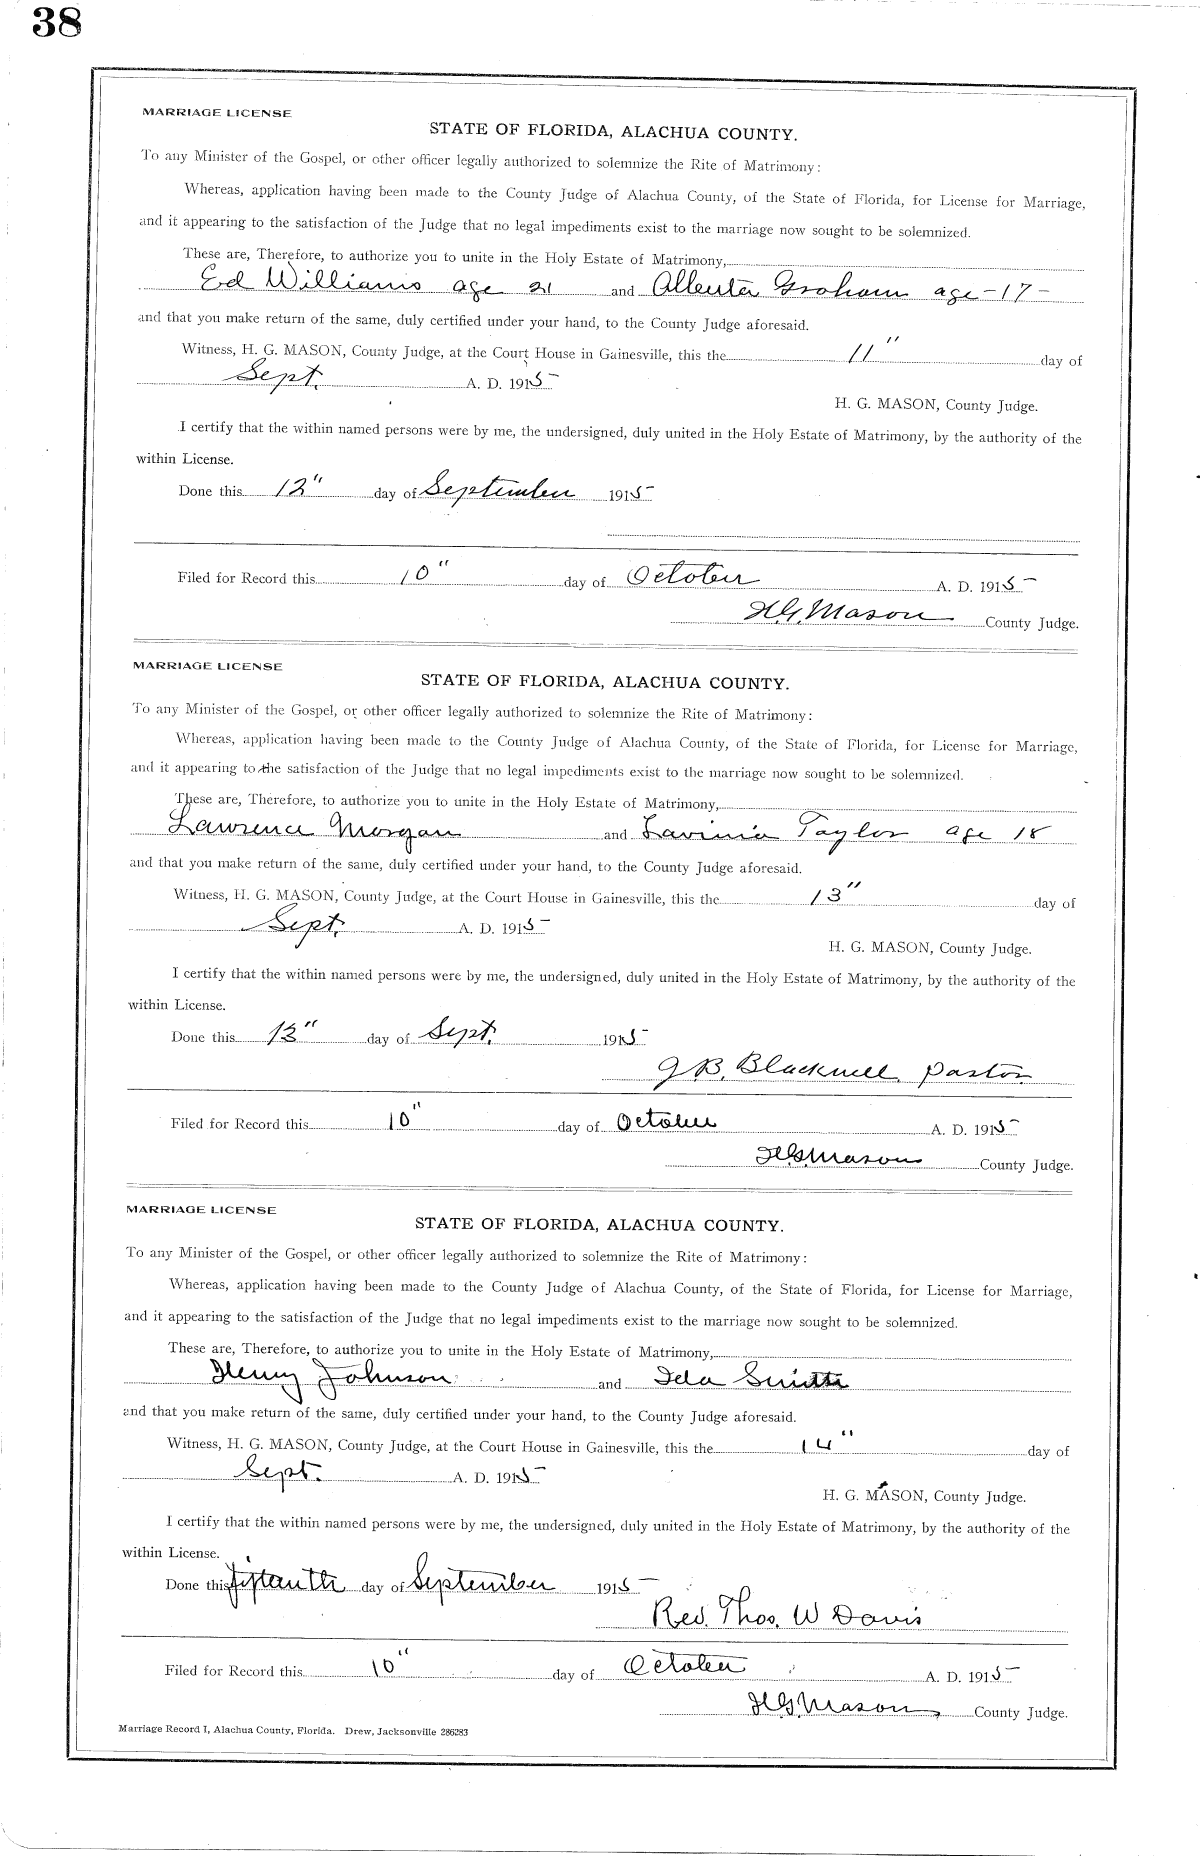 38
MARRIAGE LICENSE
STATE OF FLORIDA, ALACHUA COUNTY.
To any Minister of the Gospel, or other officer legally authorized to solemnize the Rite of Matrimony:
Whereas, application having been made to the County Judge of Alachua County, of the State of Florida, for License for Marriage,
and it appearing to the satisfaction of the Judge that no legal impediments exist to the marriage now sought to be solemnized.
These are, Therefore, to authorize you to unite in the Holy Estate of Matrimony,
Ed Williams age 21 and Alberta Graham age -17-
and that you make return of the same, duly certified under your hand, to the County Judge aforesaid.
Witness, H. G. MASON, County Judge, at the Court House in Gainesville, this the 11" day of
Sept. A. D. 1915
H. G. MASON, County Judge.
I certify that the within named persons were by me, the undersigned, duly united in the Holy Estate of Matrimony, by the authority of the
within License.
Done this 12" day of September 1915
Filed for Record this 10" day of October A. D. 1915
H.G. Mason County Judge.
MARRIAGE LICENSE
STATE OF FLORIDA, ALACHUA COUNTY.
To any Minister of the Gospel, or other officer legally authorized to solemnize the Rite of Matrimony:
Whereas, application having been made to the County Judge of Alachua County, of the State of Florida, for License for Marriage,
and it appearing to the satisfaction of the Judge that no legal impediments exist to the marriage now sought to be solemnized.
These are, Therefore, to authorize you to unite in the Holy Estate of Matrimony,
Lawrence Morgan and Lavinia Taylor age 18
and that you make return of the same, duly certified under your hand, to the County Judge aforesaid.
Witness, H. G. MASON, County Judge, at the Court House in Gainesville, this the 13" day of
Sept. A. D. 1915
H. G. MASON, County Judge.
I certify that the within named persons were by me, the undersigned, duly united in the Holy Estate of Matrimony, by the authority of the
within License.
Done this 13" day of Sept. 1915
J.B. Blackwell, Pastor
Filed for Record this 10" day of October A. D. 1915
H.G. Mason County Judge.
MARRIAGE LICENSE
STATE OF FLORIDA, ALACHUA COUNTY.
To any Minister of the Gospel, or other officer legally authorized to solemnize the Rite of Matrimony:
Whereas, application having been made to the County Judge of Alachua County, of the State of Florida, for License for Marriage,
and it appearing to the satisfaction of the Judge that no legal impediments exist to the marriage now sought to be solemnized.
These are, Therefore, to authorize you to unite in the Holy Estate of Matrimony,
Henry Johnson and Ida Smith
and that you make return of the same, duly certified under your hand, to the County Judge aforesaid.
Witness, H. G. MASON, County Judge, at the Court House in Gainesville, this the 14" day of
Sept. A. D. 1915
H. G. MASON, County Judge.
I certify that the within named persons were by me, the undersigned, duly united in the Holy Estate of Matrimony, by the authority of the
within License.
Done this day of September 1915
Rev. Thos. W Davis
Filed for Record this 10" day of October A. D. 1915
H.G. Mason, County Judge.
Marriage Record I, Alachua County, Florida. Drew, Jacksonville 286283